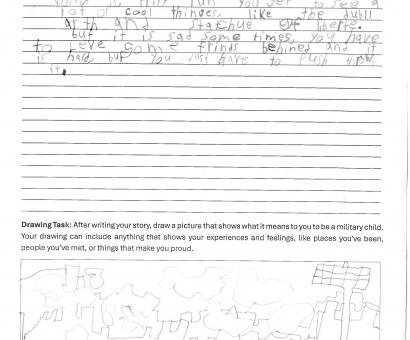 fun you get to see a
lot of cool thinges, like the dubll
arth and statchue of liberte.
but it is sad some times, you have
to leve some frinds behined and it
is hard but you just have to push throw
it.
Drawing Task: After writing your story, draw a picture that shows what it means to you to be a military child.
Your drawing can include anything that shows your experiences and feelings, like places you've been,
people you've met, or things that make you proud.